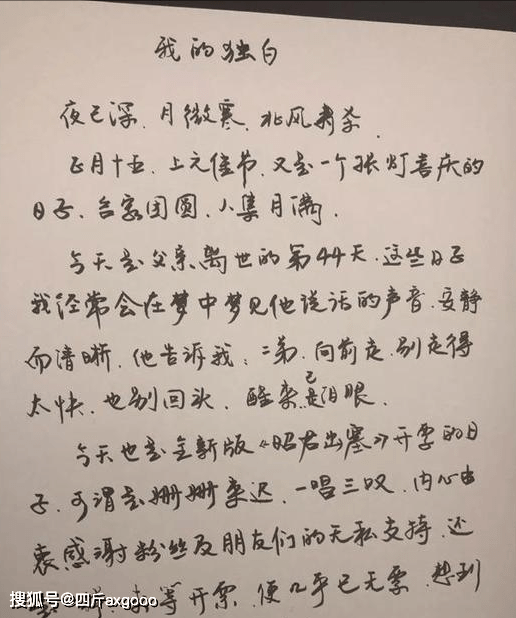 我的独白
夜已深、月微寒、北风肃杀、
正月十五、上元佳节、又是一个张灯喜庆的
日子、合家团圆、人集月满、
今天是父亲离世的第44天、这些日子
我经常会在梦中梦见他说话的声音、安静
而清晰、他告诉我、二弟、向前走、别走得
太快、也别回头、醒来已是泪眼、
今天也是全新版《昭君出塞》开票的日
子、可谓是姗姗来迟、一唱三叹、内心由
衷感谢粉丝及朋友们的无私支持、还
等开票、便几乎已无票、想到
搜狐号@四斤axgooo